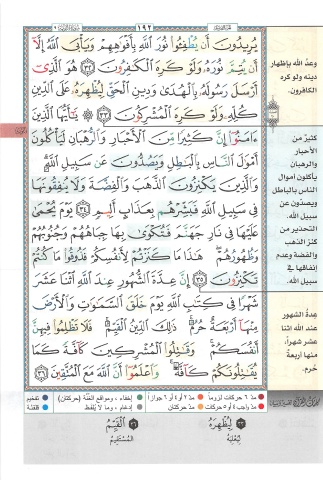 ١٩٢
يُرِيدُونَ أَن يُطْفِـُٔوا۟ نُورَ ٱللَّهِ بِأَفْوَٰهِهِمْ وَيَأْبَى ٱللَّهُ إِلَّآ
أَن يُتِمَّ نُورَهُۥ وَلَوْ كَرِهَ ٱلْكَٰفِرُونَ ٣٢ هُوَ ٱلَّذِىٓ
أَرْسَلَ رَسُولَهُۥ بِٱلْهُدَىٰ وَدِينِ ٱلْحَقِّ لِيُظْهِرَهُۥ عَلَى ٱلدِّينِ
كُلِّهِۦ وَلَوْ كَرِهَ ٱلْمُشْرِكُونَ ٣٣ يَٰٓأَيُّهَا ٱلَّذِينَ
ءَامَنُوٓا۟ إِنَّ كَثِيرًا مِّنَ ٱلْأَحْبَارِ وَٱلرُّهْبَانِ لَيَأْكُلُونَ
أَمْوَٰلَ ٱلنَّاسِ بِٱلْبَٰطِلِ وَيَصُدُّونَ عَن سَبِيلِ ٱللَّهِ
وَٱلَّذِينَ يَكْنِزُونَ ٱلذَّهَبَ وَٱلْفِضَّةَ وَلَا يُنفِقُونَهَا
فِى سَبِيلِ ٱللَّهِ فَبَشِّرْهُم بِعَذَابٍ أَلِيمٍ ٣٤ يَوْمَ يُحْمَىٰ
عَلَيْهَا فِى نَارِ جَهَنَّمَ فَتُكْوَىٰ بِهَا جِبَاهُهُمْ وَجُنُوبُهُمْ
وَظُهُورُهُمْ هَٰذَا مَا كَنَزْتُمْ لِأَنفُسِكُمْ فَذُوقُوا۟ مَا كُنتُمْ
تَكْنِزُونَ ٣٥ إِنَّ عِدَّةَ ٱلشُّهُورِ عِندَ ٱللَّهِ ٱثْنَا عَشَرَ
شَهْرًا فِى كِتَٰبِ ٱللَّهِ يَوْمَ خَلَقَ ٱلسَّمَٰوَٰتِ وَٱلْأَرْضَ
مِنْهَآ أَرْبَعَةٌ حُرُمٌ ذَٰلِكَ ٱلدِّينُ ٱلْقَيِّمُ فَلَا تَظْلِمُوا۟ فِيهِنَّ
أَنفُسَكُمْ وَقَٰتِلُوا۟ ٱلْمُشْرِكِينَ كَآفَّةً كَمَا
يُقَٰتِلُونَكُمْ كَآفَّةً وَٱعْلَمُوٓا۟ أَنَّ ٱللَّهَ مَعَ ٱلْمُتَّقِينَ ٣٦
وعدُ الله بإظهار
دينه ولو كره
الكافرون.
كثيرٌ من
الأحبار
والرهبان
يأكلون أموال
الناس بالباطل
ويصدّون عن
سبيل الله.
التحذير من
كنز الذهب
والفضة وعدم
إنفاقها في
سبيل الله.
عدةُ الشهور
عند الله اثنا
عشر شهراً،
منها أربعةٌ
حُرم.
مدّ ٦ حركات لزوماً مدّ ٢ أو ٤ أو ٦ جوازاً إخفاء، ومواقع الغنّة (حركتان) تفخيم
مدّ واجب ٤ أو ٥ حركات مدّ حركتان إدغام، وما لا يُلفظ قلقلة
٣٣ لِيُظْهِرَهُ
لِيُعْلِيَهُ
٣٦ الْقَيِّمُ
الْمُسْتَقِيمُ